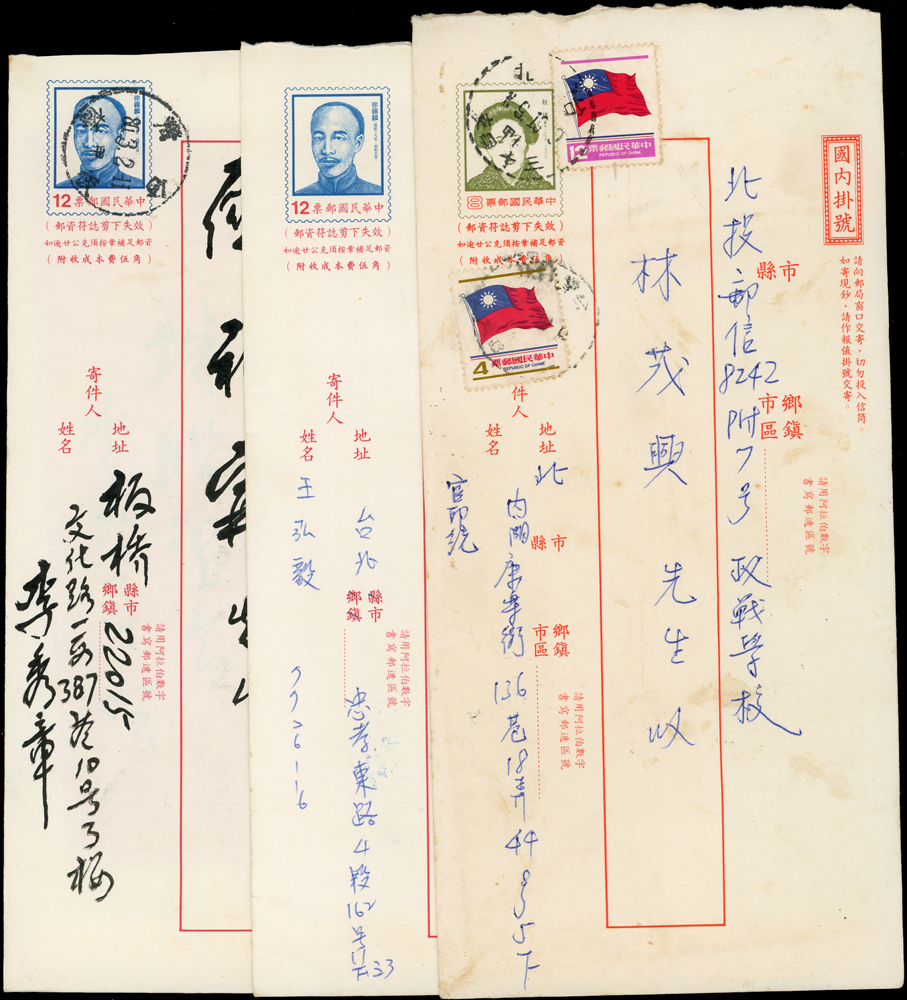 徐錫麟
12 票郵國民華中
（郵資符誌剪下失效）
如逾廿公克須按章補足郵資
（附收成本費伍角）
寄件人
地址
姓名
板橋
縣市
鄉鎮
22015
請用阿拉伯數字
書寫郵遞區號
文化路一段387巷10号3樓
李秀章
80.3.2.11
先生
徐錫麟
12 票郵國民華中
（郵資符誌剪下失效）
如逾廿公克須按章補足郵資
（附收成本費伍角）
寄件人
地址
姓名
台北
縣市
鄉鎮
請用阿拉伯數字
書寫郵遞區號
忠孝東路4段162号
王弘毅
7726116
國內掛號
請向郵局窗口交寄，切勿投入信筒。
如寄現鈔，請作報值掛號交寄。
市
縣
鄉鎮
市區
請用阿拉伯數字
書寫郵遞區號
北投郵信8242附7号政戰學校
林茂興先生
12 票郵國民華中
REPUBLIC OF CHINA
8 票郵國民華中
（郵資符誌剪下失效）
如逾廿公克須按章補足郵資
（附收成本費伍角）
4 票郵國民華中
REPUBLIC OF CHINA
件人
地址
姓名
北
市
縣
鄉鎮
市區
請用阿拉伯數字
書寫郵遞區號
內湖康寧街136巷18弄44号5F